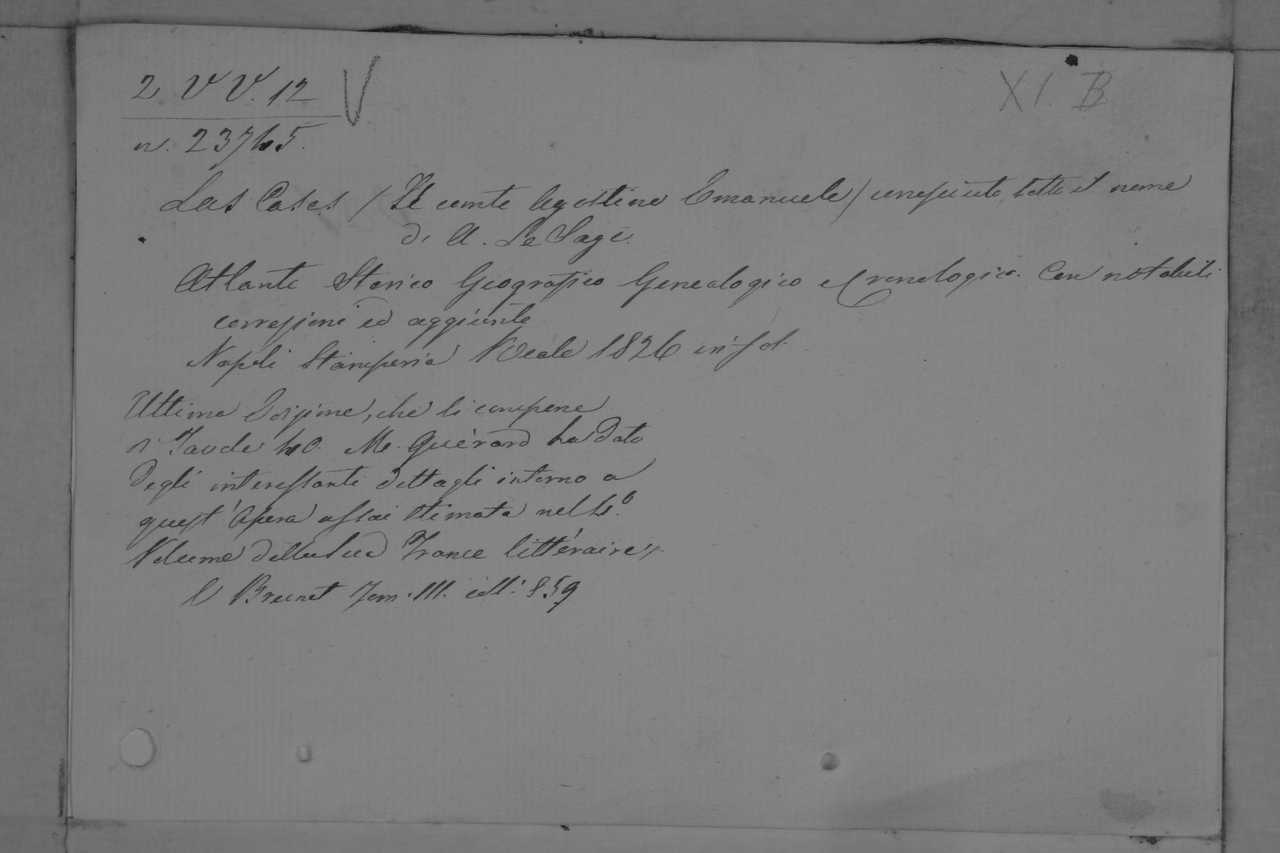 2 V V. 12 V
XI. B
n. 23765.
Las Cases (Il conte Agostino Emanuele) conosciuto sotto il nome
di A. Le Sage.
Atlante Storico Geografico Genealogico e Cronologico. Con notabili
correzioni ed aggiunte
Napoli Stamperia Reale 1826 in fol.
Ultima Edizione, che si compone
di Tavole 40. Mr. Quérard ha dato
degli interessanti dettagli intorno a
quest'opera assai stimata nel 4.o
Volume della sua France littéraire
Brunet Tom. III. col. 859